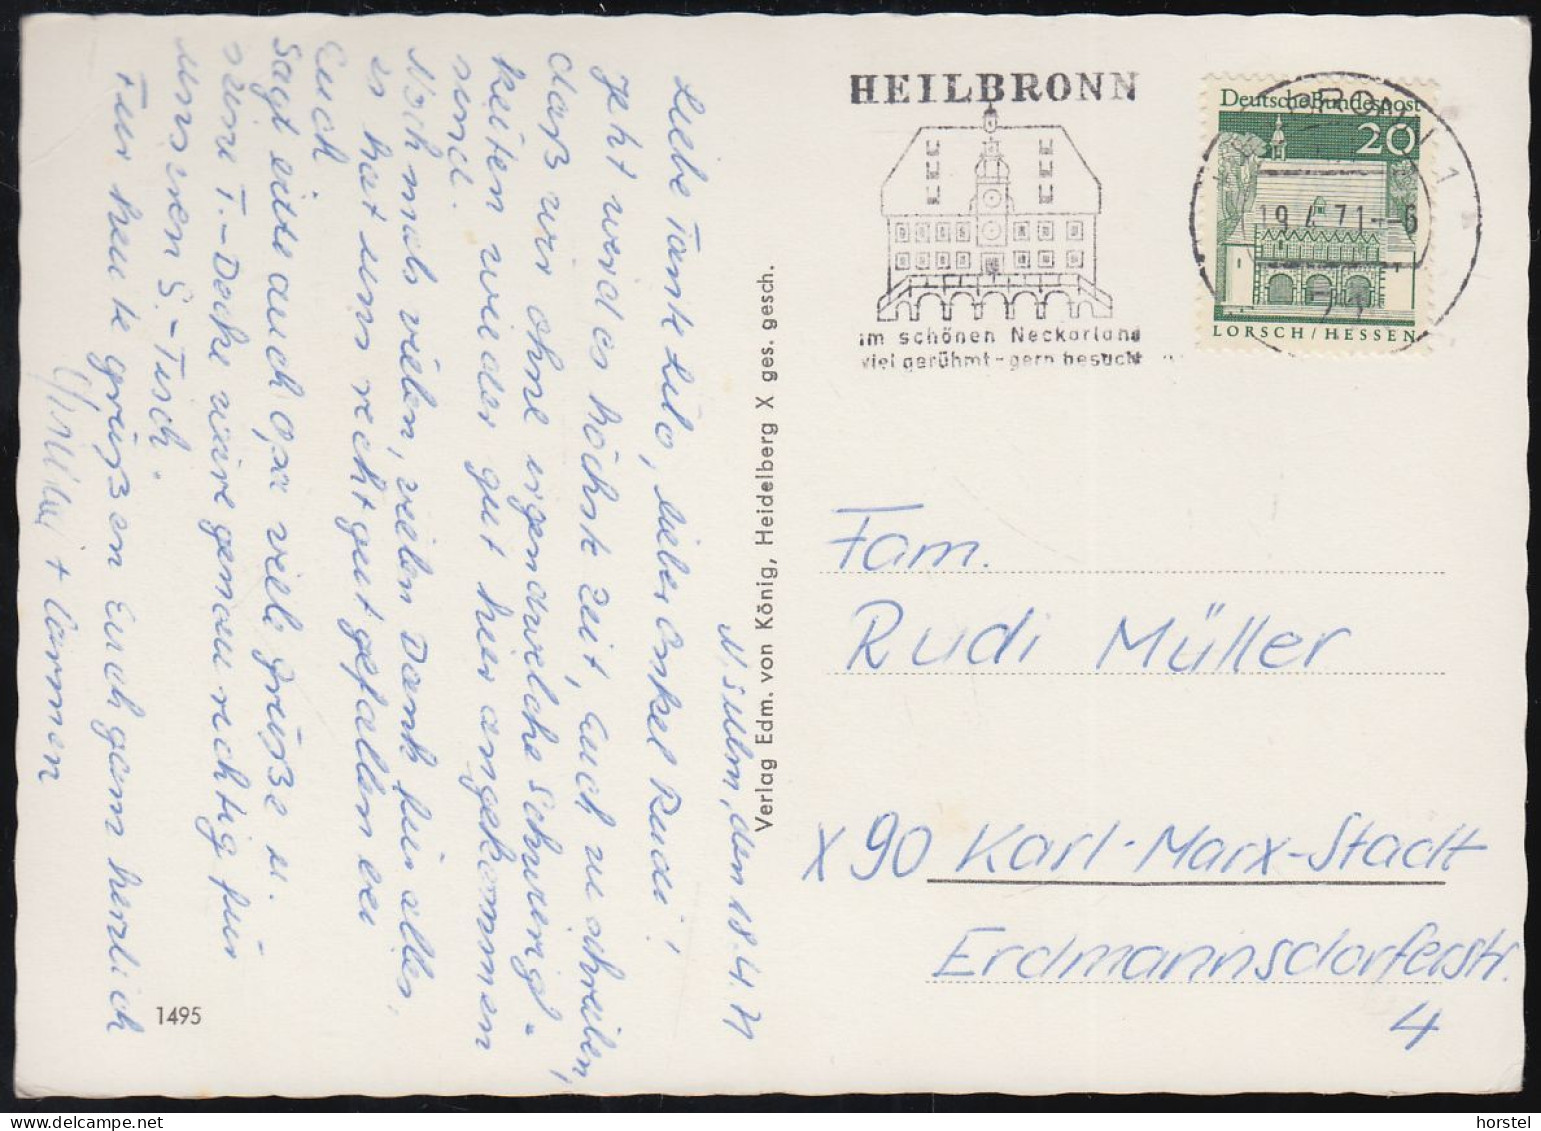 N'sulm, den 18.4.71
Liebe Tante Lilo, lieber Onkel Rudi!
Jetzt wird es höchste Zeit, Euch zu schreiben,
daß wir ohne irgendwelche Schwierig-
keiten wieder gut hier angekommen
sind.
Nochmals vielen, vielen Dank für alles,
es hat uns recht gut gefallen bei
Euch
Sagt bitte auch Opa viele Grüße u.
seine T.-Decke wäre genau richtig für
unseren S.-Tisch.
Für heute grüßen Euch ganz herzlich
+ Carmen
1495
Verlag Edm. von König, Heidelberg X ges. gesch.
HEILBRONN
im schönen Neckarland
viel gerühmt - gern besucht
Deutsche Bundespost
20
LORSCH/HESSEN
19.4.71--6
Fam.
Rudi Müller
X 90 Karl-Marx-Stadt
Erdmannsdorferstr.
4
horstel